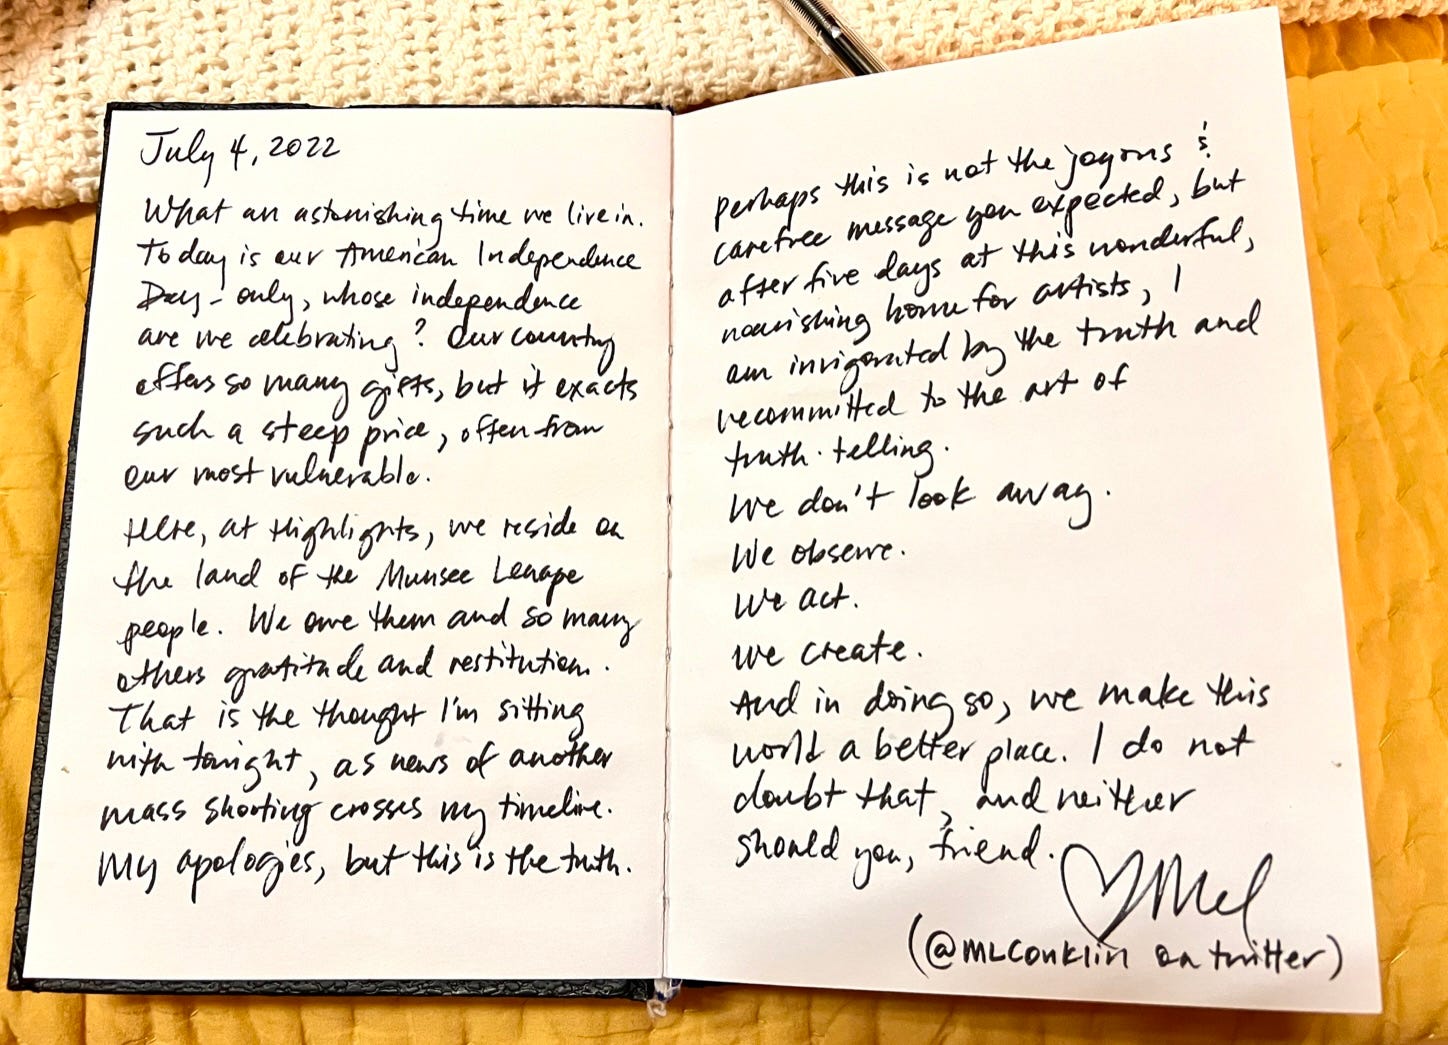 July 4, 2022
What an astonishing time we live in.
Today is our American Independence
Day - only, whose independence
are we celebrating? Our country
offers so many gifts, but it exacts
such a steep price, often from
our most vulnerable.
Here, at Highlights, we reside on
the land of the Munsee Lenape
people. We owe them and so many
others gratitude and restitution.
That is the thought I'm sitting
with tonight, as news of another
mass shooting crosses my timeline.
My apologies, but this is the truth.
Perhaps this is not the joyous &
carefree message you expected, but
after five days at this wonderful,
nourishing home for artists, I
am invigorated by the truth and
recommitted to the art of
truth-telling.
We don't look away.
We observe.
We act.
We create.
And in doing so, we make this
world a better place. I do not
doubt that, and neither
should you, friend.
♡Mel
(@MLConklin on twitter)